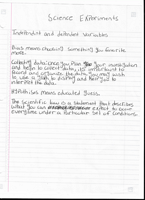 Science Experiments
Independent and dependent variables
Bias means choosing something you favorite
more.
Collecting data: once you plan your investigation
and begin to collect data, its important to
record and organize the data. You may wish
to use a graph to display and help you to
interpret the data.
Hypothesis means educated guess.
The scientific law is a statement that describes
what you can expect to occur
everytime under a particular set of conditions